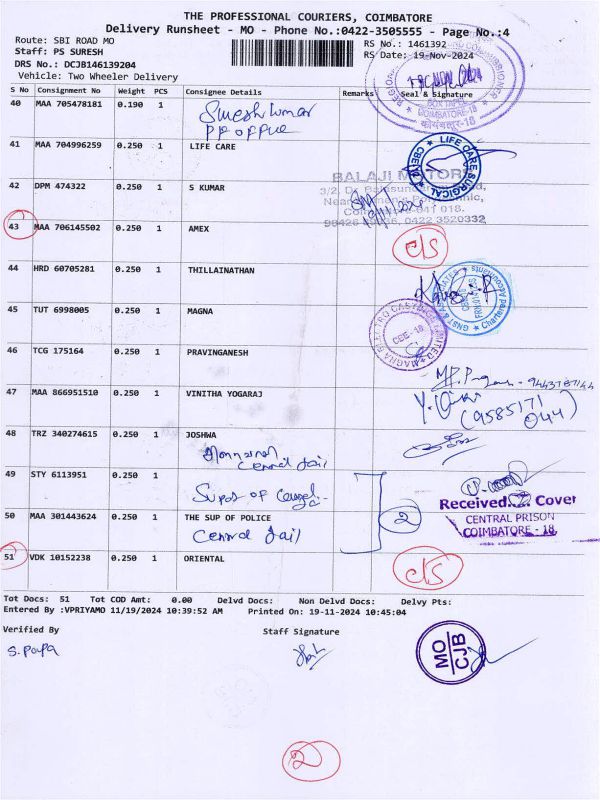 THE PROFESSIONAL COURIERS, COIMBATORE
Delivery Runsheet - MO - Phone No.:0422-3505555 - Page No.:4
Route: SBI ROAD MO
RS No.: 1461392
Staff: PS SURESH
RS Date: 19-Nov-2024
DRS No.: DCJB146139204
Vehicle: Two Wheeler Delivery
S No Consignment No Weight PCS Consignee Details Remarks Seal & Signature
40 MAA 705478181 0.190 1 Sureshkumar
PF office
COIMBATORE-18
41 MAA 704996259 0.250 1 LIFE CARE
LIFE CARE SURGICAL
42 DPM 474322 0.250 1 S KUMAR
BALAJI MOTORS
43 MAA 706145502 0.250 1 AMEX C/S
44 HRD 60705281 0.250 1 THILLAINATHAN
Chartered Accountants
45 TUT 6998005 0.250 1 MAGNA
MAGNA ELECTRO CASTINGS LIMITED
CBE-18
46 TCG 175164 0.250 1 PRAVINGANESH
47 MAA 866951510 0.250 1 VINITHA YOGARAJ
(9585171
044)
48 TRZ 340274615 0.250 1 JOSHWA
Central Jail
49 STY 6113951 0.250 1
Received Cover
50 MAA 301443624 0.250 1 THE SUP OF POLICE 2
Central Jail
CENTRAL PRISON
COIMBATORE - 18.
51 VDK 10152238 0.250 1 ORIENTAL C/S
Tot Docs: 51 Tot COD Amt: 0.00 Delvd Docs: Non Delvd Docs: Delvy Pts:
Entered By :VPRIYAMO 11/19/2024 10:39:52 AM Printed On: 19-11-2024 10:45:04
Verified By Staff Signature
S. Papa
MO
CJB
2